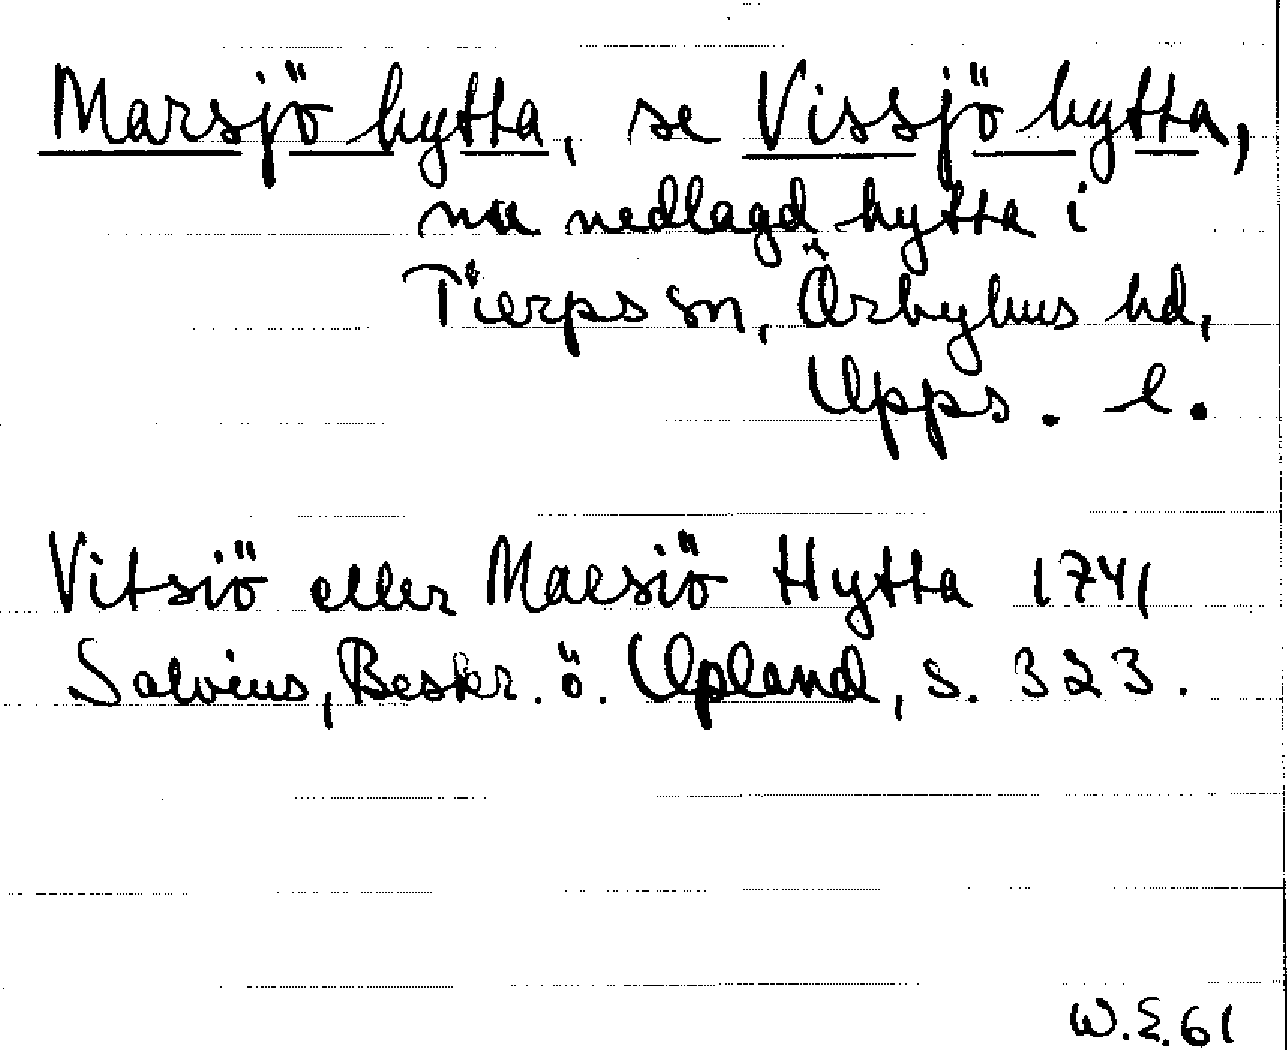 Marsjö hytta, se Vissjö hytta,
nu nedlagd hytta i
Tierps sn, Örbyhus hd,
Upps. l.
Vitsiö eller Maesiö Hytta 1741
Salvius, Beskr. ö. Upland, s. 323.
W.E. 61